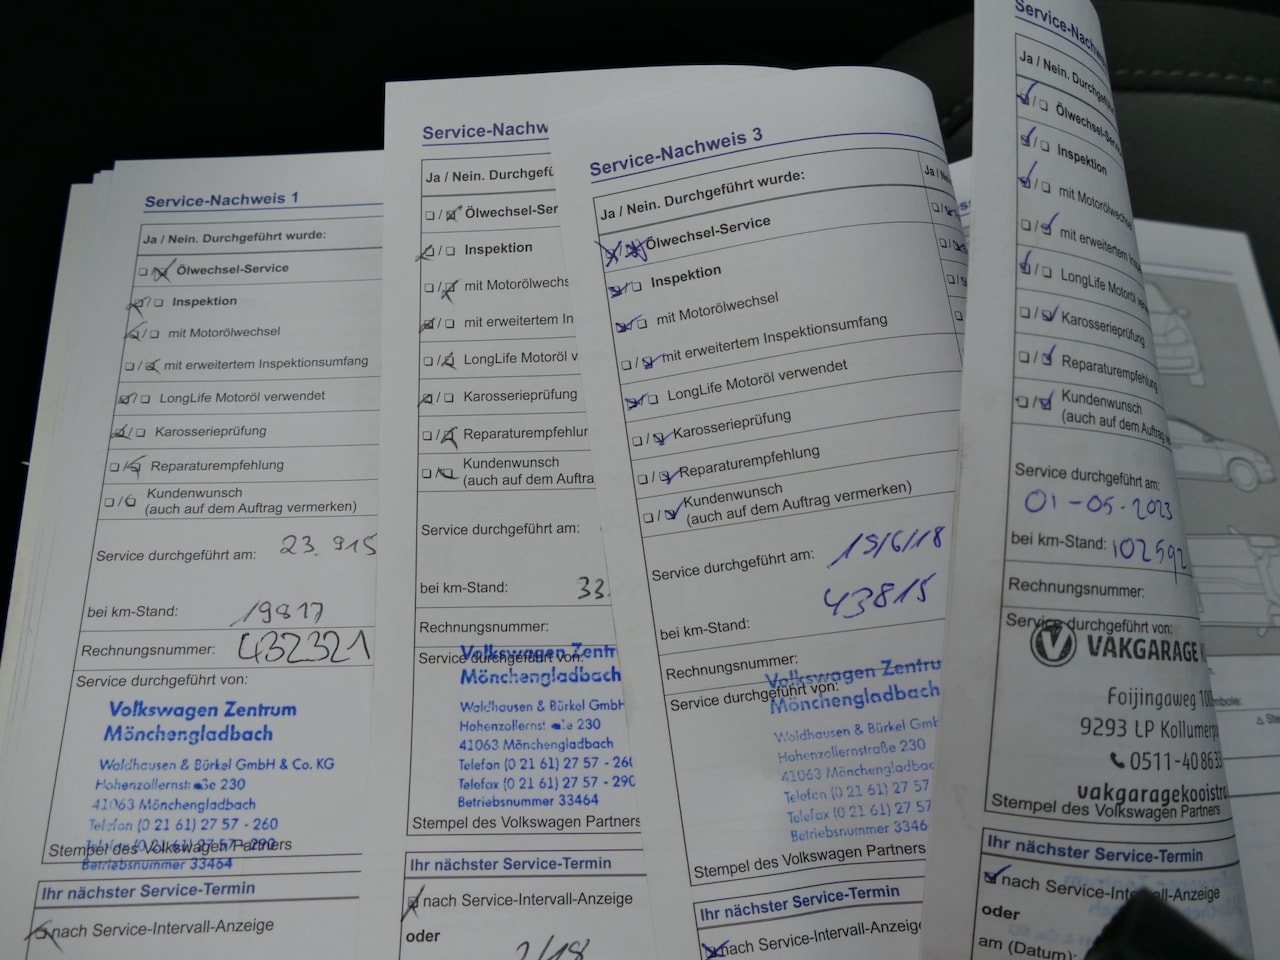 Service-Nachweis 1
Ja / Nein. Durchgeführt wurde:
Ölwechsel-Service
Inspektion
mit Motorölwechsel
mit erweitertem Inspektionsumfang
LongLife Motoröl verwendet
Karosserieprüfung
Reparaturempfehlung
Kundenwunsch
(auch auf dem Auftrag vermerken)
Service durchgeführt am: 23. 915
bei km-Stand: 19817
Rechnungsnummer: 432321
Service durchgeführt von:
Volkswagen Zentrum
Mönchengladbach
Waldhausen & Bürkel GmbH & Co. KG
Hohenzollernstraße 230
41063 Mönchengladbach
Telefon (0 21 61) 27 57 - 260
Telefax (0 21 61) 27 57 - 290
Stempel des Volkswagen Partners
Betriebsnummer 33464
Ihr nächster Service-Termin
nach Service-Intervall-Anzeige
Service-Nachw
Ja / Nein. Durchgefü
Ölwechsel-Ser
Inspektion
mit Motorölwechs
mit erweitertem In
LongLife Motoröl v
Karosserieprüfung
Reparaturempfehlur
Kundenwunsch
(auch auf dem Auftra
Service durchgeführt am:
bei km-Stand: 33.
Rechnungsnummer:
Service durchgeführt von:
Volkswagen Zentr
Mönchengladbach
Waldhausen & Bürkel GmbH
Hohenzollernst aße 230
41063 Mönchengladbach
Telefon (0 21 61) 27 57 - 260
Telefax (0 21 61) 27 57 - 290
Betriebsnummer 33464
Stempel des Volkswagen Partners
Ihr nächster Service-Termin
nach Service-Intervall-Anzeige
oder
2/18
Service-Nachweis 3
Ja / Nein. Durchgeführt wurde:
Ölwechsel-Service
Inspektion
mit Motorölwechsel
mit erweitertem Inspektionsumfang
LongLife Motoröl verwendet
Karosserieprüfung
Reparaturempfehlung
Kundenwunsch
(auch auf dem Auftrag vermerken)
Service durchgeführt am: 15/6/18
bei km-Stand: 43815
Rechnungsnummer:
Service durchgeführt von:
Volkswagen Zentru
Mönchengladbach
Waldhausen & Bürkel Gmb
Hohenzollernstraße 230
41063 Mönchengladbac
Telefon (0 21 61) 27 57
Telefax (0 21 61) 27 57
Betriebsnummer 3346
Stempel des Volkswagen Partners
Ihr nächster Service-Termin
nach Service-Intervall-Anzeige
Ja / Nein
Service-Nachw
Ja / Nein. Durchgefü
Ölwechsel-Se
Inspektion
mit Motorölwechse
mit erweitertem Inspe
LongLife Motoröl ve
Karosserieprüfung
Reparaturempfehlung
Kundenwunsch
(auch auf dem Auftrag ve
Service durchgeführt am:
01-05-2023
bei km-Stand: 102592
Rechnungsnummer:
Service durchgeführt von:
VAKGARAGE K
Foijingaweg 100
9293 LP Kollumerp
0511-408633
vakgaragekooistra
Stempel des Volkswagen Partners
Ihr nächster Service-Termin
nach Service-Intervall-Anzeige
oder
am (Datum):